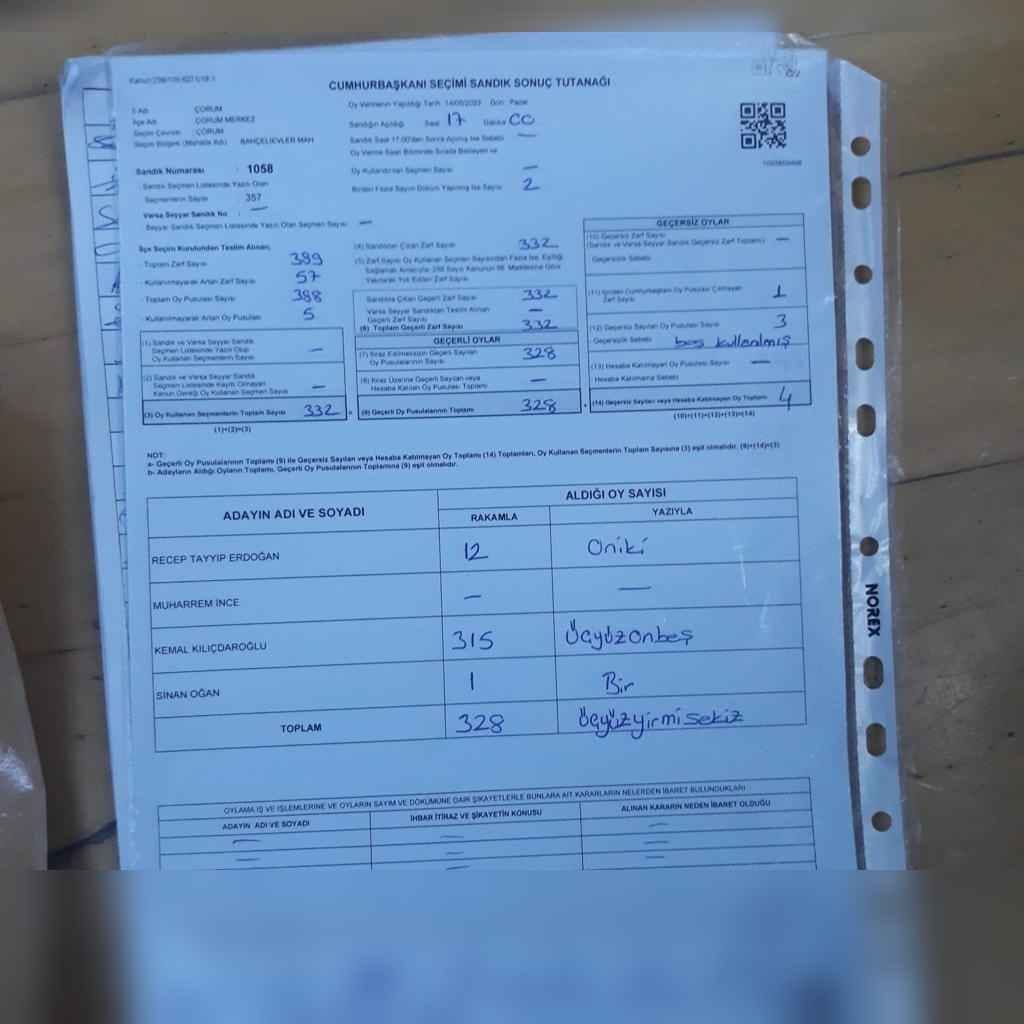 CUMHURBAŞKANI SEÇİMİ SANDIK SONUÇ TUTANAĞI
İl Adı : ÇORUM
İlçe Adı : ÇORUM MERKEZ
Seçim Çevresi : ÇORUM
Seçim Bölgesi (Mahalle Adı) BAHÇELİEVLER MAH
Oy Vermenin Yapıldığı Tarih 14/05/2023 Gün Pazar
Sandığın Açıldığı Saat 17 Dakika CC
Sandık Saat 17.00'den Sonra Açılmış İse Sebebi —
Oy Verme Saati Bitiminde Sırada Bekleyen ve
Oy Kullandırılan Seçmen Sayısı —
Birden Fazla Sayım Döküm Yapılmış İse Sayısı 2
Sandık Numarası : 1058
Sandık Seçmen Listesinde Yazılı Olan
Seçmenlerin Sayısı 357
Varsa Seyyar Sandık No : —
Seyyar Sandık Seçmen Listesinde Yazılı Olan Seçmen Sayısı —
İlçe Seçim Kurulundan Teslim Alınan;
- Toplam Zarf Sayısı 389
- Kullanılmayarak Artan Zarf Sayısı 57
- Toplam Oy Pusulası Sayısı 388
- Kullanılmayarak Artan Oy Pusulası 5
(1) Sandık ve Varsa Seyyar Sandık
Seçmen Listesinde Yazılı Olup
Oy Kullanan Seçmenlerin Sayısı —
(2) Sandık ve Varsa Seyyar Sandık
Seçmen Listesinde Kayıtlı Olmayan
Kanun Gereği Oy Kullanan Seçmen Sayısı —
(3) Oy Kullanan Seçmenlerin Toplam Sayısı 332
(1)+(2)=(3)
(4) Sandıktan Çıkan Zarf Sayısı 332
(5) Zarf Sayısı Oy Kullanan Seçmen Sayısından Fazla İse, Eşitliği
Sağlamak Amacıyla 298 Sayılı Kanunun 98. Maddesine Göre
Yakılarak Yok Edilen Zarf Sayısı
Sandıkta Çıkan Geçerli Zarf Sayısı 332
Varsa Seyyar Sandıktan Teslim Alınan
Geçerli Zarf Sayısı —
(6) Toplam Geçerli Zarf Sayısı 332
GEÇERLİ OYLAR
(7) İtiraz Edilmeksizin Geçerli Sayılan
Oy Pusulalarının Sayısı 328
(8) İtiraz Üzerine Geçerli Sayılan veya
Hesaba Katılan Oy Pusulası Toplamı —
(9) Geçerli Oy Pusulalarının Toplamı 328
GEÇERSİZ OYLAR
(10) Geçersiz Zarf Sayısı
(Sandık ve Varsa Seyyar Sandık Geçersiz Zarf Toplamı) —
Geçersizlik Sebebi
(11) İçinden Cumhurbaşkanı Oy Pusulası Çıkmayan
Zarf Sayısı 1
(12) Geçersiz Sayılan Oy Pusulası Sayısı 3
Geçersizlik Sebebi boş kullanılmış
(13) Hesaba Katılmayan Oy Pusulası Sayısı —
Hesaba Katılmama Sebebi
(14) Geçersiz Sayılan veya Hesaba Katılmayan Oy Toplamı 4
(10)+(11)+(12)+(13)=(14)
NOT:
a- Geçerli Oy Pusulalarının Toplamı (9) ile Geçersiz Sayılan veya Hesaba Katılmayan Oy Toplamı (14) Toplamları, Oy Kullanan Seçmenlerin Toplam Sayısına (3) eşit olmalıdır. (9)+(14)=(3)
b- Adayların Aldığı Oyların Toplamı, Geçerli Oy Pusulalarının Toplamına (9) eşit olmalıdır.
ADAYIN ADI VE SOYADI
ALDIĞI OY SAYISI
RAKAMLA YAZIYLA
RECEP TAYYIP ERDOĞAN 12 Oniki
MUHARREM İNCE — —
KEMAL KILIÇDAROĞLU 315 Üçyüzonbeş
SİNAN OĞAN 1 Bir
TOPLAM 328 Üçyüzyirmisekiz
OYLAMA İŞ VE İŞLEMLERİNE VE OYLARIN SAYIM VE DÖKÜMÜNE DAİR ŞİKAYETLERLE BUNLARA AİT KARARLARIN NELERDEN İBARET BULUNDUKLARI
ADAYIN ADI VE SOYADI İHBAR İTİRAZ VE ŞİKAYETİN KONUSU ALINAN KARARIN NEDEN İBARET OLDUĞU
— — —
— — —
NOREX